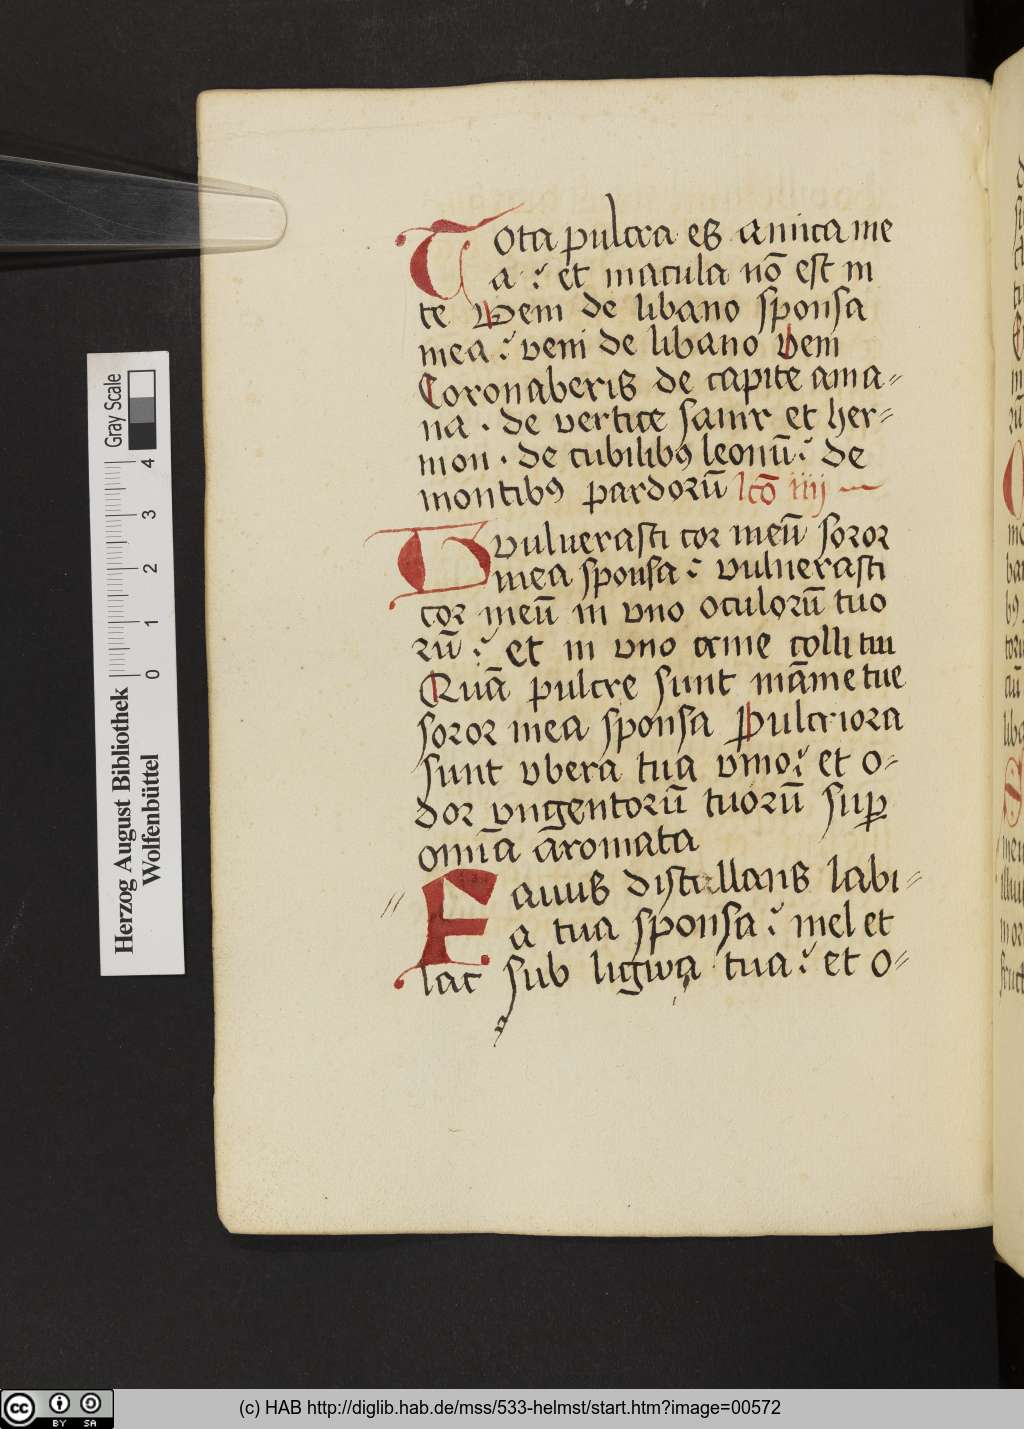 Tota pulcra es amica me
a : et macula nō est in
te Veni de libano sponsa
mea : veni de libano veni
Coronaberis de capite ama=
na . de vertice sanir et her=
mon . de cubilibꝯ leonū : de
montibꝯ pardorū lcō iiij
Vvulnerasti cor meū soror
mea sponsa : vulnerasti
cor meū in vno oculorū tuo
rū : et in vno crine colli tui
Quā pulcre sunt māme tue
soror mea sponsa Pulcriora
sunt vbera tua vino : et o=
dor vngentorū tuorū suꝑ
omīa āromata
Fauus distillans labi=
a tua sponsa : mel et
lac sub ligwa tua : et o=
Gray Scale
0 1 2 3 4
Herzog August Bibliothek
Wolfenbüttel
cc BY SA
(c) HAB http://diglib.hab.de/mss/533-helmst/start.htm?image=00572